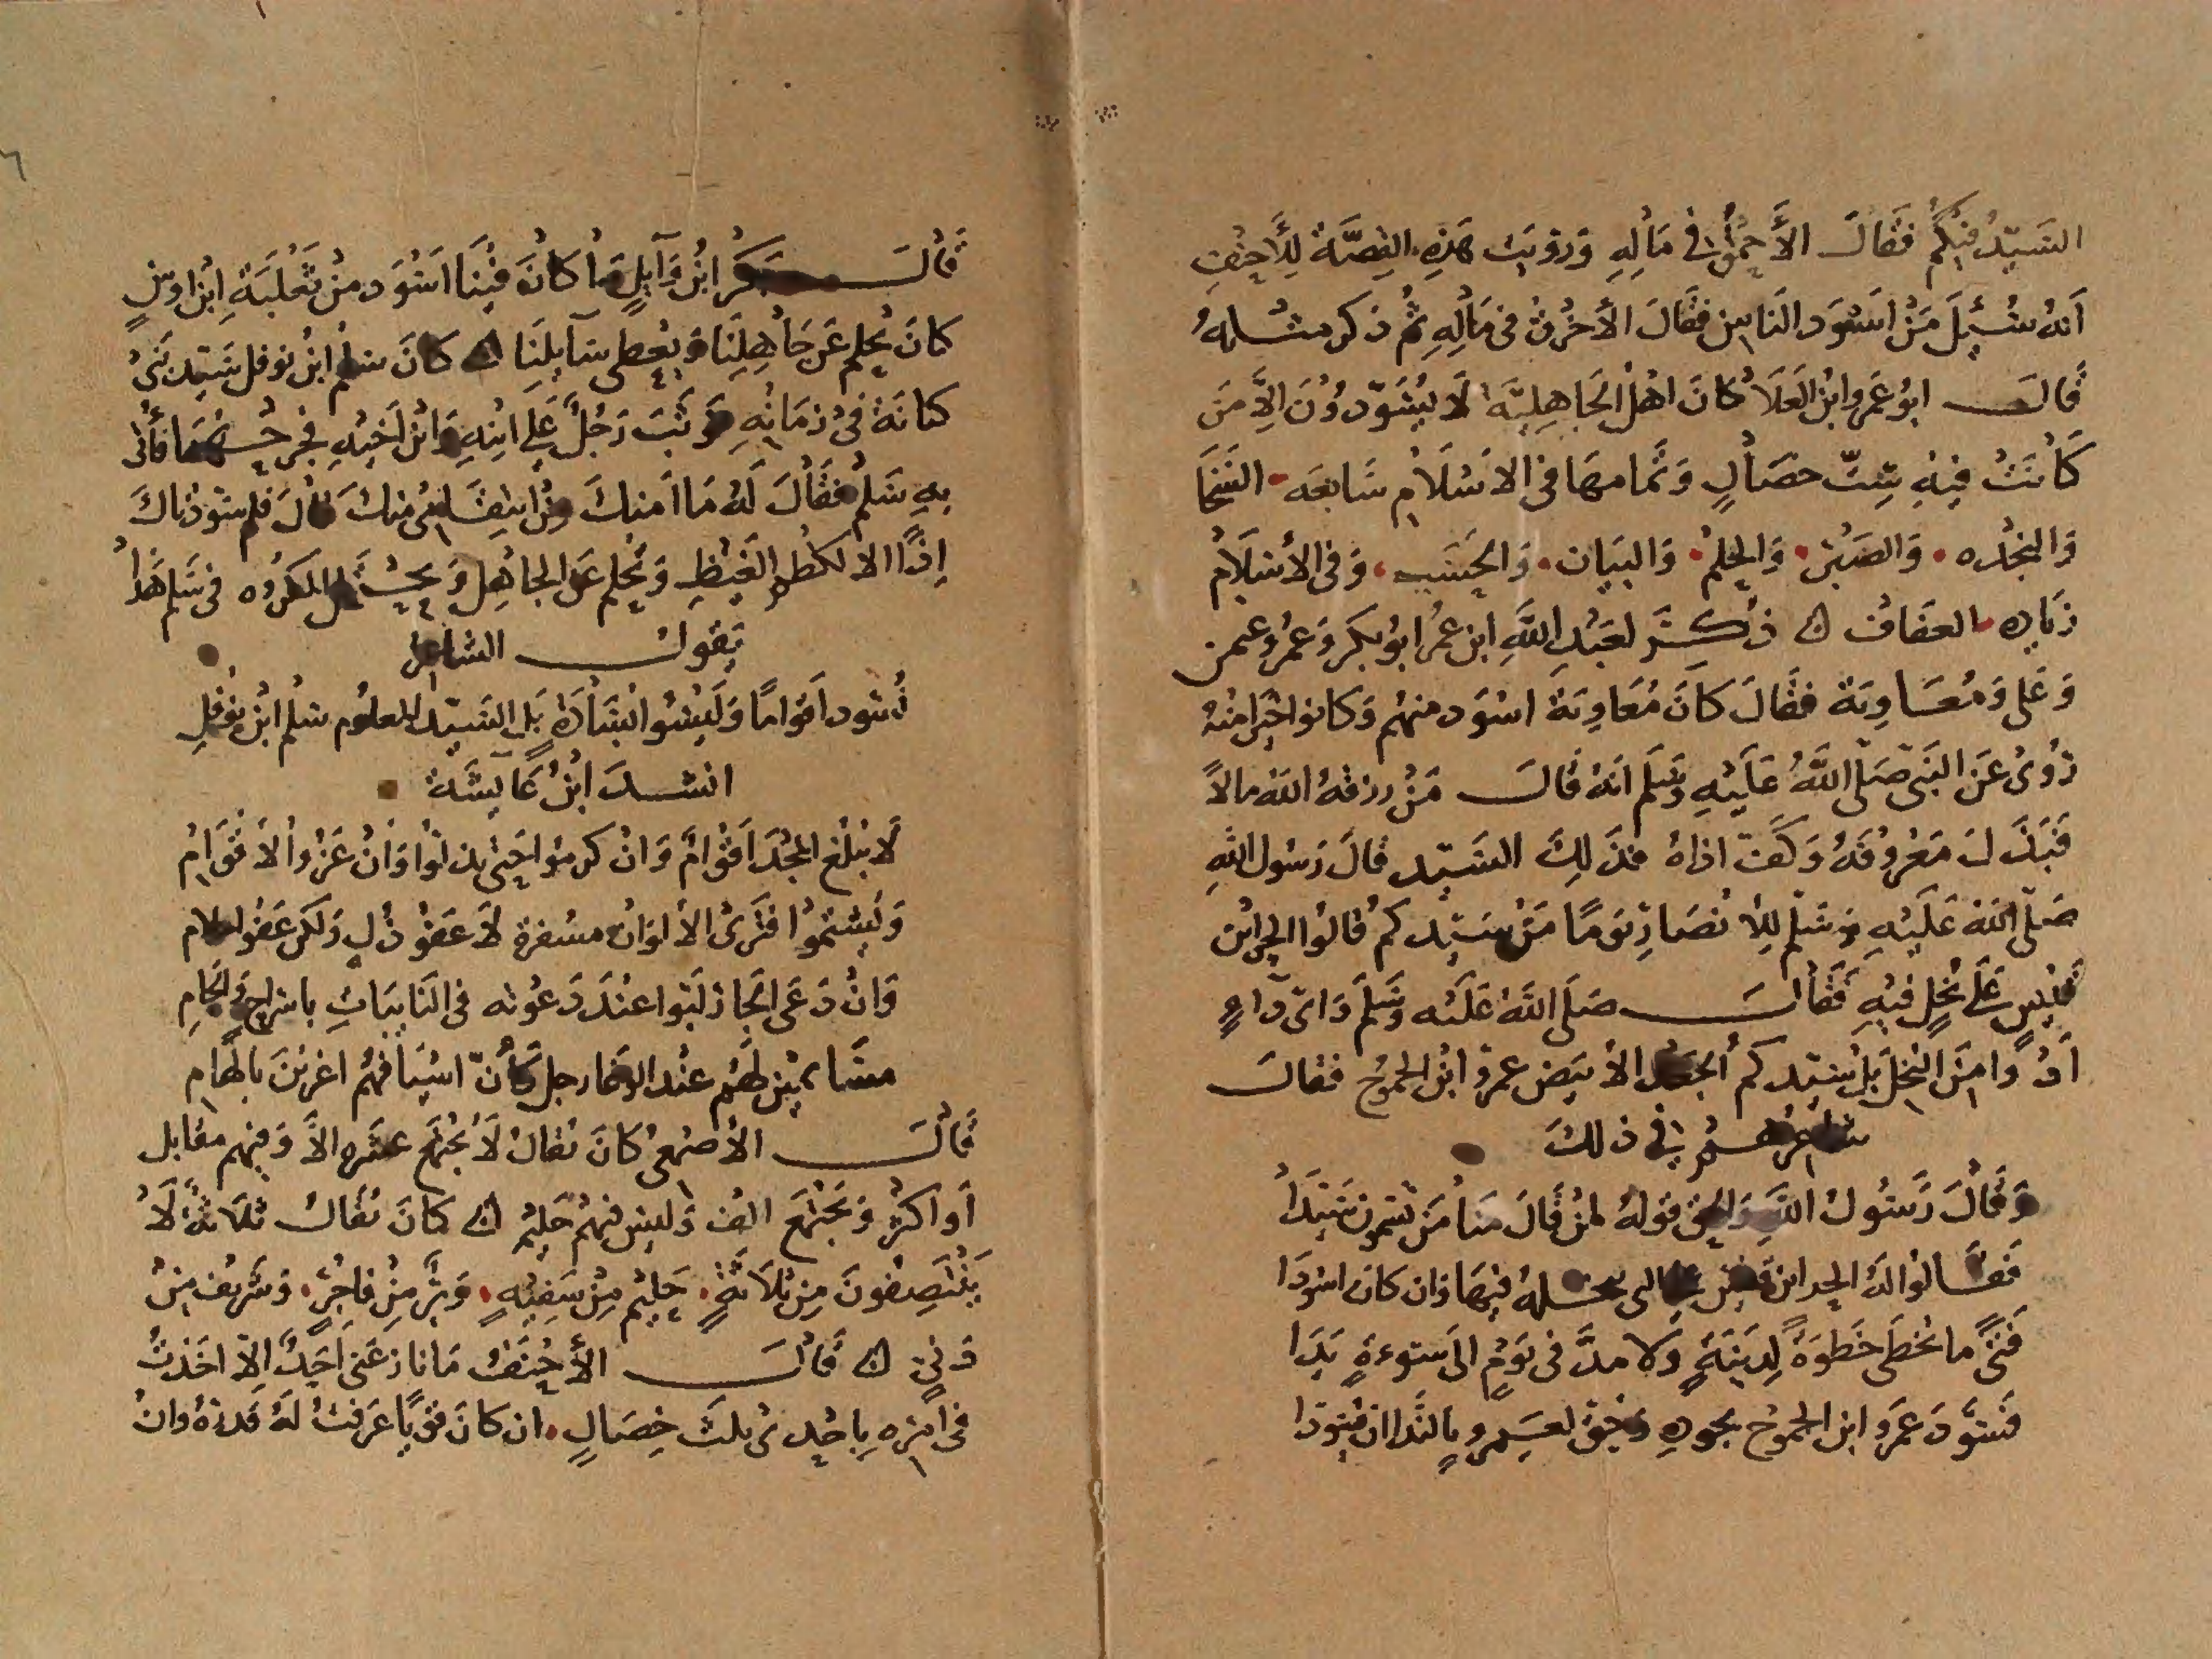 السَيّدُ فيكُم فقَالَ الأَحمَقُ في مَالِهِ وَرويَت هَذِهِ القِصَّة لِلأَحنَفِ
اَنهُ سُئِلَ مَنْ اَسْوَد النَاسِ فقَالَ الأَخرَقُ في مَالِهِ ثُم ذكر مثلهُ
قَالَ ابُو عَمرو ابن العَلَا كَانَ اهْل الجَاهِليَّة لَا يُسَوّدوُنَ الِّا مَن
كَانَتْ فيْهِ سِتّ خصَالٍ وَتَمامهَا في الاسْلَام سَابعَه السَخَا
وَالنجْده وَالصَبْر وَالحِلمْ وَالبيَان وَالحَسَب وَفي الأسْلَام
زيَاده العفَاف ذُكِرَ لعَبْدِ اللَّهِ ابن عمُر ابوُ بكر وَعمُر وعثمن
وَعَلي وَمُعَاوِيَة فقَالَ كَانَ مُعَاوِيَة اسْوَد منهُم وَكانوا خيْرا منْهُ
رُوىَ عَن النَبي صَلّى اللَّهُ عَليْهِ وَسَلم اَنهُ قَالَ مَنْ رزقهُ اللّهُ مالاً
فَبَذَلَ مَعْروُفَهُ وَكَفَّ اذاهُ فذَلِكَ السَيّد قالَ رَسُول اللهِ
صَلّى اللهُ عَليْهِ وَسَلم لِلأنصَار يَومًا مَنْ سَيّدكمُ قالوُا الجد ابن
قيْسٍ عَلَى بُخلٍ فيْهِ فَقَالَ صَلّى اللهُ عَليْه وَسَلمَ وَاىّ دَاءٍ
اَدْوا منَ البُخل بَل سَيّدكم الجَعْد الأبيَض عمرو ابْن الجموُح فقالَ
شاعرهم في ذلكَ
وَقَالَ رَسُولُ اللَّهِ وَالحق قولهُ لمنْ قَالَ منا مَن تسَمون سَيّدَا
فقَالوا لهُ الجد ابن قيس على التي نبخله فيهَا وَان كان اسْوَدَا
فتًى ما تخطَى خَطوَةً لِدَنيَّةٍ وَلا مدَّ في يَوْمٍ الى سَوءةٍ يَدَا
فسَوَّدَ عَمرو ابن الجموُح بجودِهِ وَحُقَّ لعَمرو بالنَّدا ان يُسَوّدا
قَالَ بَكرُ ابْنُ وَآيِلٍ مَا كَانَ فيْنَا اَسْوَد منْ ثَعْلَبَة ابْن اوسٍ
كانَ يحلم عَن جَاهِلِنَا وَيعْطي سَآيلنَا كَانَ سلم ابْن نوفل سَيّد بَني
كنانَة في زمَانهِ فوَثبَ رَجُلٌ عَلى ابْنِهِ وَابْن اَخيْهِ فجرحَهُمَا فأُتي
بهِ سَلم فقَالَ لَهُ مَا اَمنكَ من انتقَامي منكَ قَالَ فلم سَوّدناكَ
اِذًا الا لكظم الغَيْظِ وَتحْلم عَن الجاهِل وَتحْتَمل المكروُه في سَلم هَذَا
يَقولُ الشاعر
تُسَود اَقوامًا وَليْسُوا بسَادَةٍ بَل السَيّد المعلوُم سلم ابنُ نوفَلِ
انشدَ ابْنُ عَآيشَة
لَا يبْلغ المجْدَ اَقْوامٌ وَانْ كرمُوا حَتى يذلوُا وَانْ عَزُّوا لاَقْوَامِ
وَيُشتمُوا فترَى الألوَانَ مسْفرة لَا عَفْوَ ذُلٍ وَلكن عَفو احلام
وَانْ دَعَى الجَار لَبّوا عندَ دَعْوته في النَايبَاتِ باسراج وَالجامِ
مسْتلئمين لهُم عنْد الوَغا رجل كأنّ اسْيَافهُم اغريْنَ بالهَامِ
قَالَ الأصْمَعي كانَ يُقالُ لَا يجْتَمع عشَره الاَّ وَفيهم مقابل
اَو اكثرُ وَيجْتمَع الف وَليس فيهمُ حَليْم كانَ يُقَالُ ثلَاثَةٌ لَا
يَنْتَصِفوُنَ مِنْ ثلَاثَةٍ حَليْم مِنْ سَفيْهٍ وَبَرٌّ مِنْ فاجِرٍ وَشَريْف مِنْ
دَنيٍّ قَالَ الأَحْنَفُ مَا نازعَني اَحَدٌ اِلّا اخَذتُ
في امْرِهِ باِحْدىَ ثلَث خِصَالٍ ان كانَ فوْقي عَرَفتُ لَهُ قَدْرَهُ وَانْ